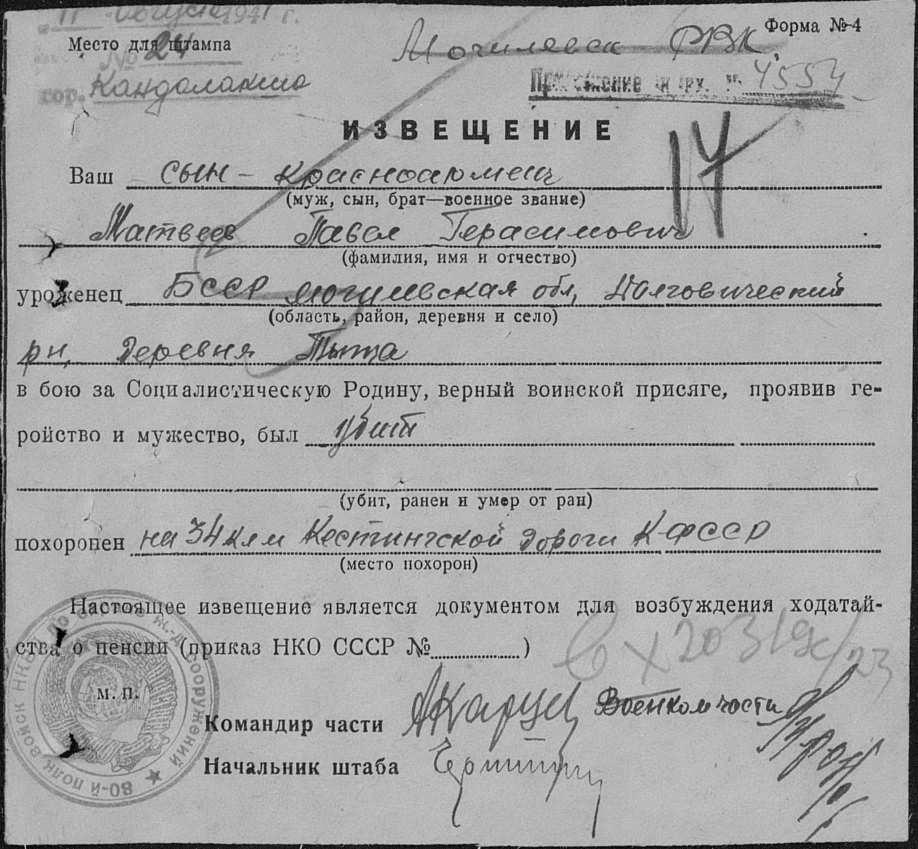 11 августа 1941 г.
Форма № 4
Место для штампа
Могилевск РВК
№ 24
гор. Кандалакша
№ 4554
ИЗВЕЩЕНИЕ
14
Ваш сын - красноармеец
(муж, сын, брат—военное звание)
Матвеев Павел Герасимович
(фамилия, имя и отчество)
уроженец БССР Могилевская обл, Долговический
(область, район, деревня и село)
рн, Деревня
в бою за Социалистическую Родину, верный воинской присяге, проявив ге-
ройство и мужество, был убит
(убит, ранен и умер от ран)
похоронен на 34 клм Кестингской дороги К-ФССР
(место похорон)
Настоящее извещение является документом для возбуждения ходатай-
ства о пенсии (приказ НКО СССР №              )
м. п.
Командир части
Военком части
Начальник штаба
80-й полк войск НКВД по охране ж-д сооружений